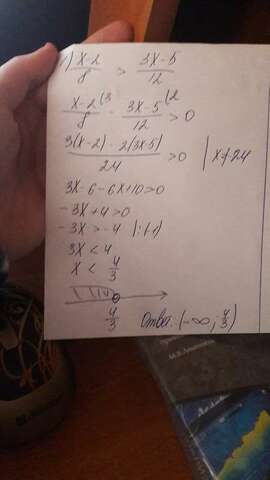 1) x-2/8 > 3x-5/12
x-2/8 (3 - 3x-5/12 (2 > 0
3(x-2) - 2(3x-5)/24 > 0 | x 24
3x-6-6x+10>0
-3x+4>0
-3x>-4 |:(-1)
3x<4
x < 4/3
4/3
Ответ: (-∞; 4/3)